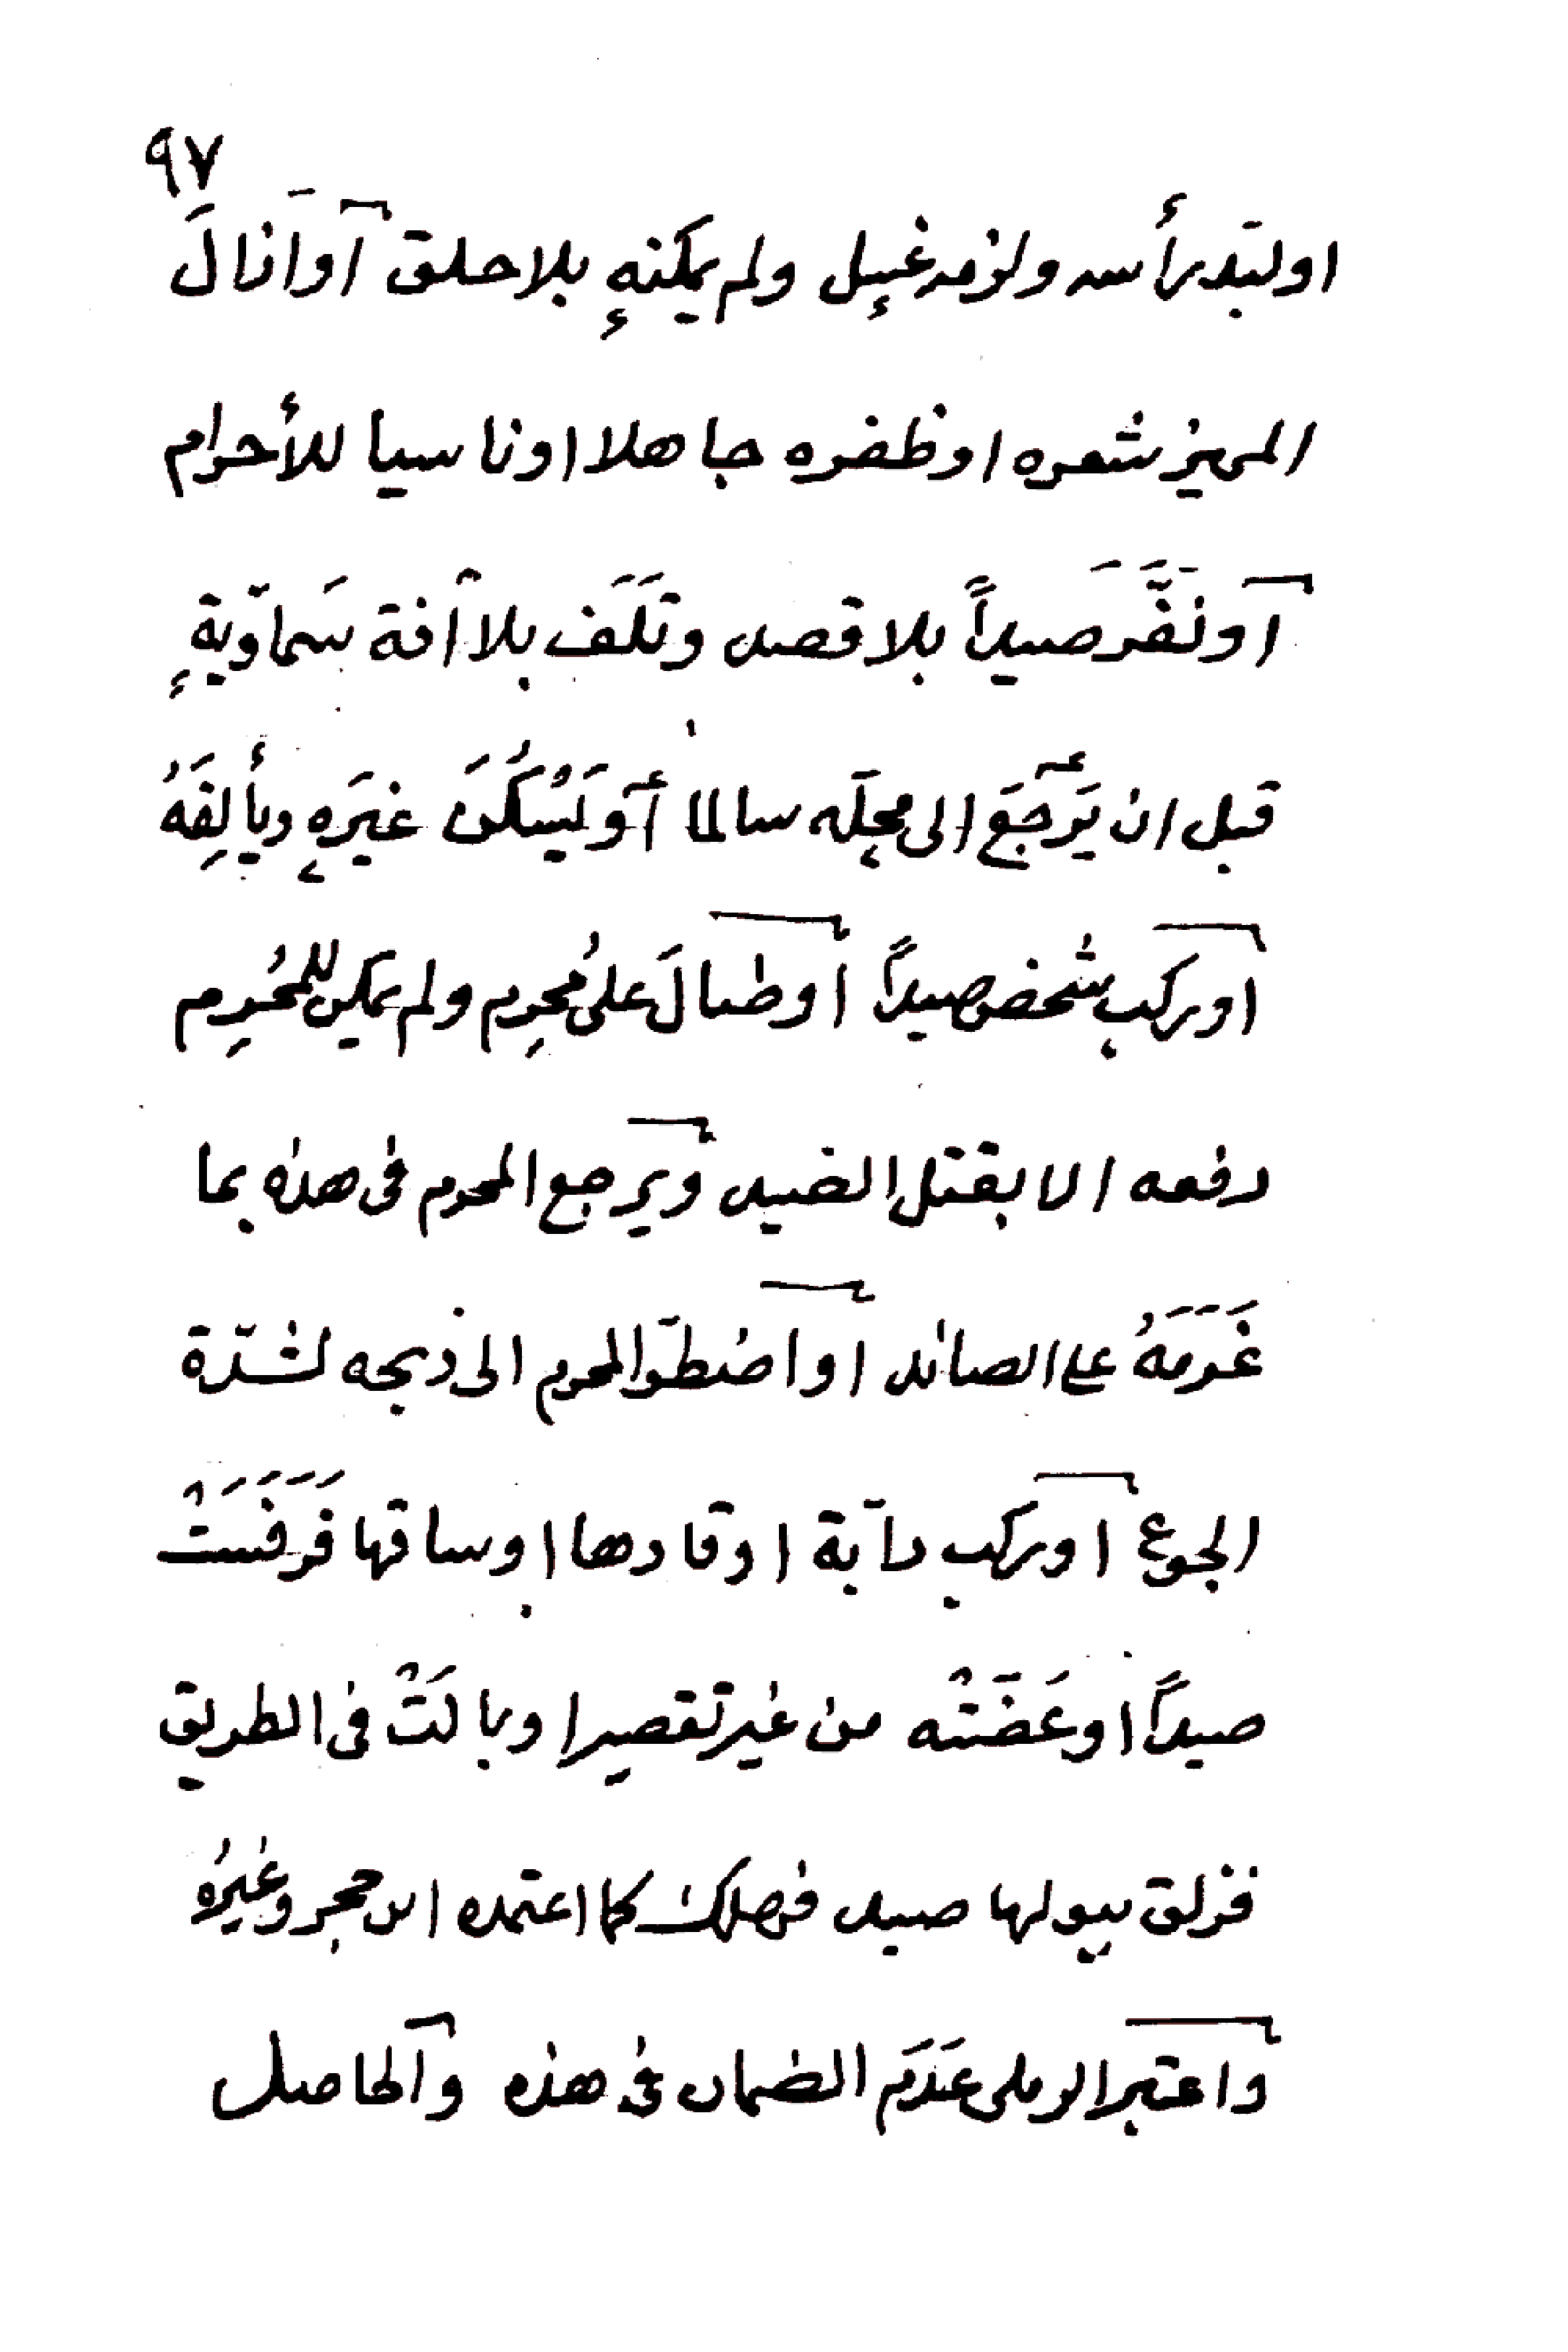 ٩٧
او لبّد رأسه ولزمه غسل ولم يمكنه بلا حلق او ازالَ
المميز شعره او ظفره جاهلا او ناسيا للأحرام
او نَفَّرَ صيداً بلا قصد وتَلَفَ بلا آفة سَماوّيةٍ
قبل ان يَرجَعَ الى محِلّه سالما أو يَسْكُنَ غيَره ويأْلِفَهُ
او ركب شخص صيداً او صالَ على مُحرِم ولم يمكن للمُحرِم
دفعه الا بقتل الصيد ويرجع المحرم فى هذه بما
غَرَمَهُ على الصائد او اضطرّ المحرم الى ذبحه لشدّة
الجوع او ركب دآبة او قادها او ساقها فَرَفَسَتْ
صيداً او عَضّتْه من غير تقصير او بالَتْ فى الطريق
فزلق ببولها صيد فهلك كما اعتمده ابن حجر وغيرُه
واعتبر الرملى عَدَم الضمان فى هذه والحاصل